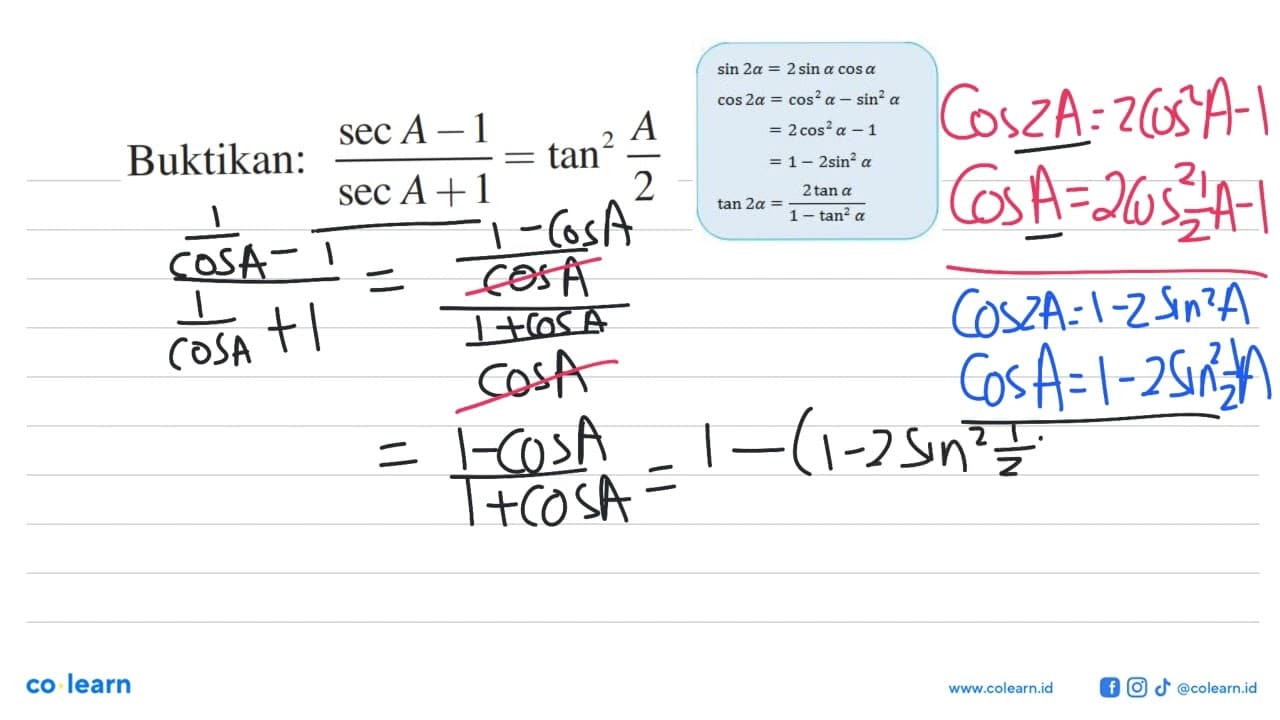 Buktikan: sec A – 1 / sec A + 1 = tan² A/2
sin 2α = 2 sin α cos α
cos 2α = cos² α − sin² α
= 2 cos² α − 1
= 1 − 2sin² α
tan 2α = 2 tan α / 1 − tan² α
Cos2A = 2Cos²A-1
CosA = 2Cos² 1/2 A-1
Cos2A = 1-2Sin²A
CosA = 1-2Sin² 1/2 A
1/COSA - 1 / 1/COSA + 1 = 1-CosA / COSA / 1+COSA / COSA
= 1-COSA / 1+COSA = 1-(1-2Sin² 1/2
co learn
www.colearn.id
@colearn.id